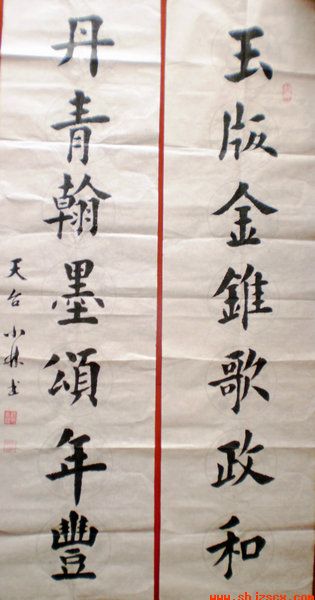 玉版金錐歌政和
丹青翰墨頌年豐
天台小林書
www.sbjzscx.com